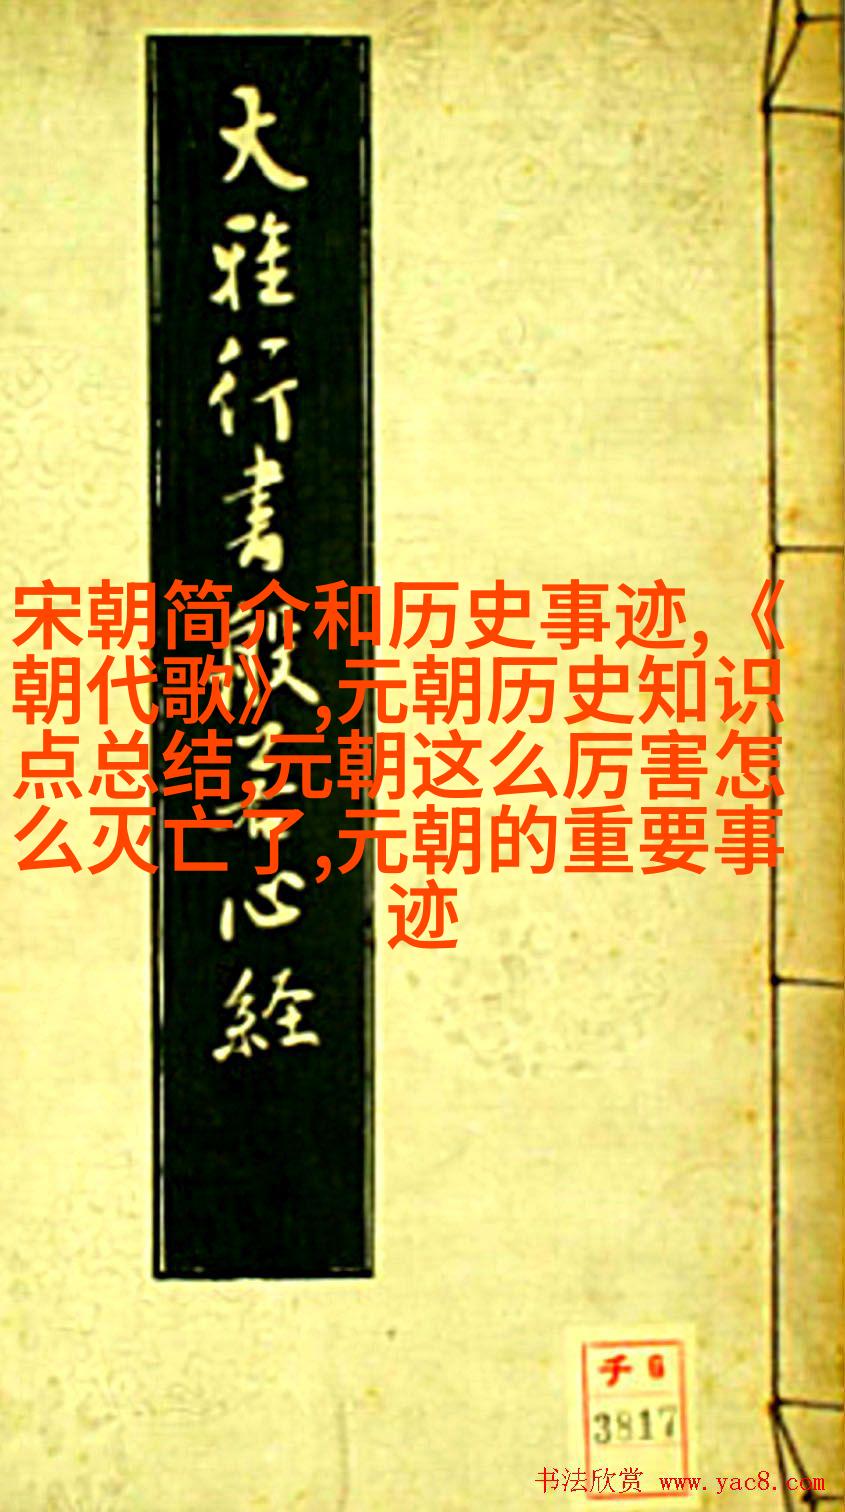 大雅行書般若心経
宋朝简介和历史事迹,《
朝代歌》,元朝历史知识
点总结,元朝这么厉害怎
么灭亡了,元朝的重要事
迹
チ 6
3817
书法欣赏 www.yac8.com